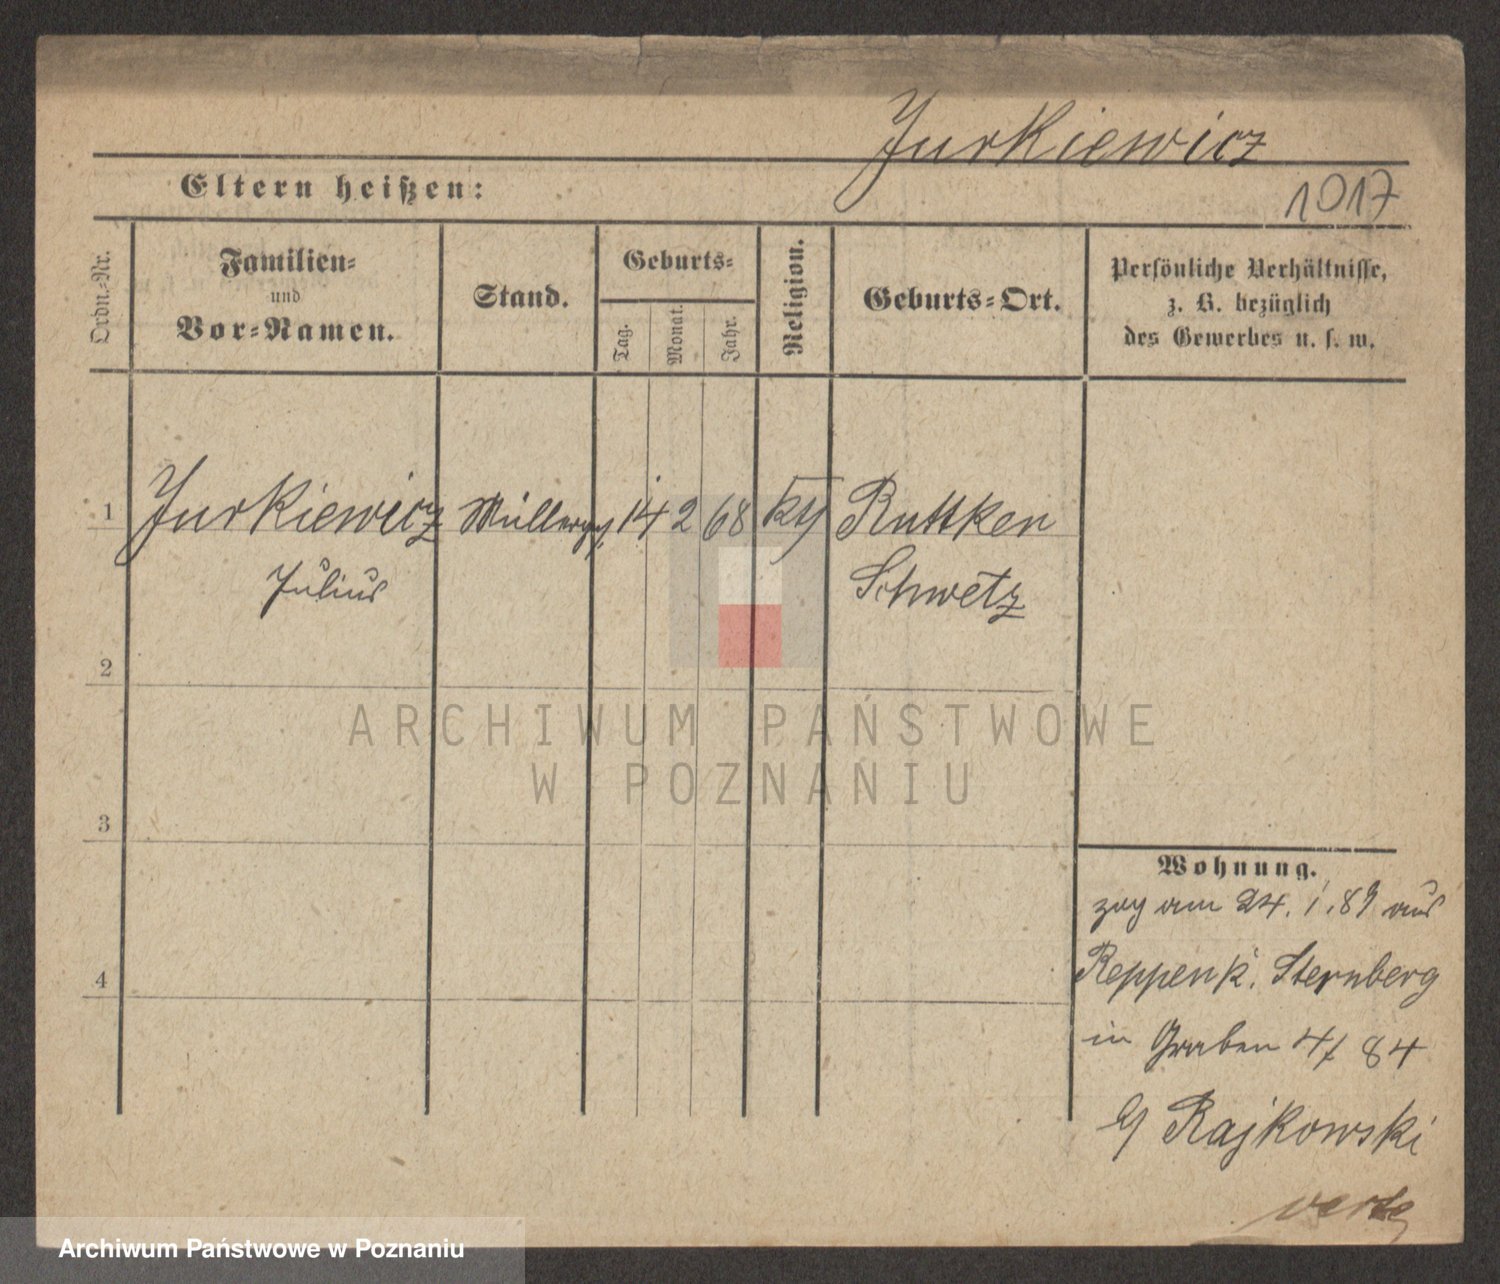 Jurkiewicz
Eltern heißen:
1017
Ordn.-Nr.
Familien-
und
Vor-Namen.
Stand.
Geburts-
Tag.
Monat.
Jahr.
Religion.
Geburts-Ort.
Persönliche Verhältnisse,
z. B. bezüglich
des Gewerbes u. s. w.
1
Jurkiewicz Müllerges. 14 2 68 Ruttken
Julius
Schwetz
2
ARCHIWUM PAŃSTWOWE
W POZNANIU
3
Wohnung.
zog am 24. 1. 89 aus
4
Reppen k. Sternberg
in Graben 4/ 84
Rajkowski
verte
Archiwum Państwowe w Poznaniu